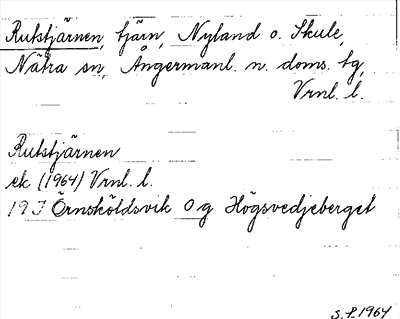 Rutstjärnen, tjärn, Nyland o. Skule,
Nätra sn, Ångermanl. n. doms. tg,
Vrnl. l.
Rutstjärnen
ek (1964) Vrnl. l.
19 I Örnsköldsvik 0 g Högsvedjeberget
S. P. 1964